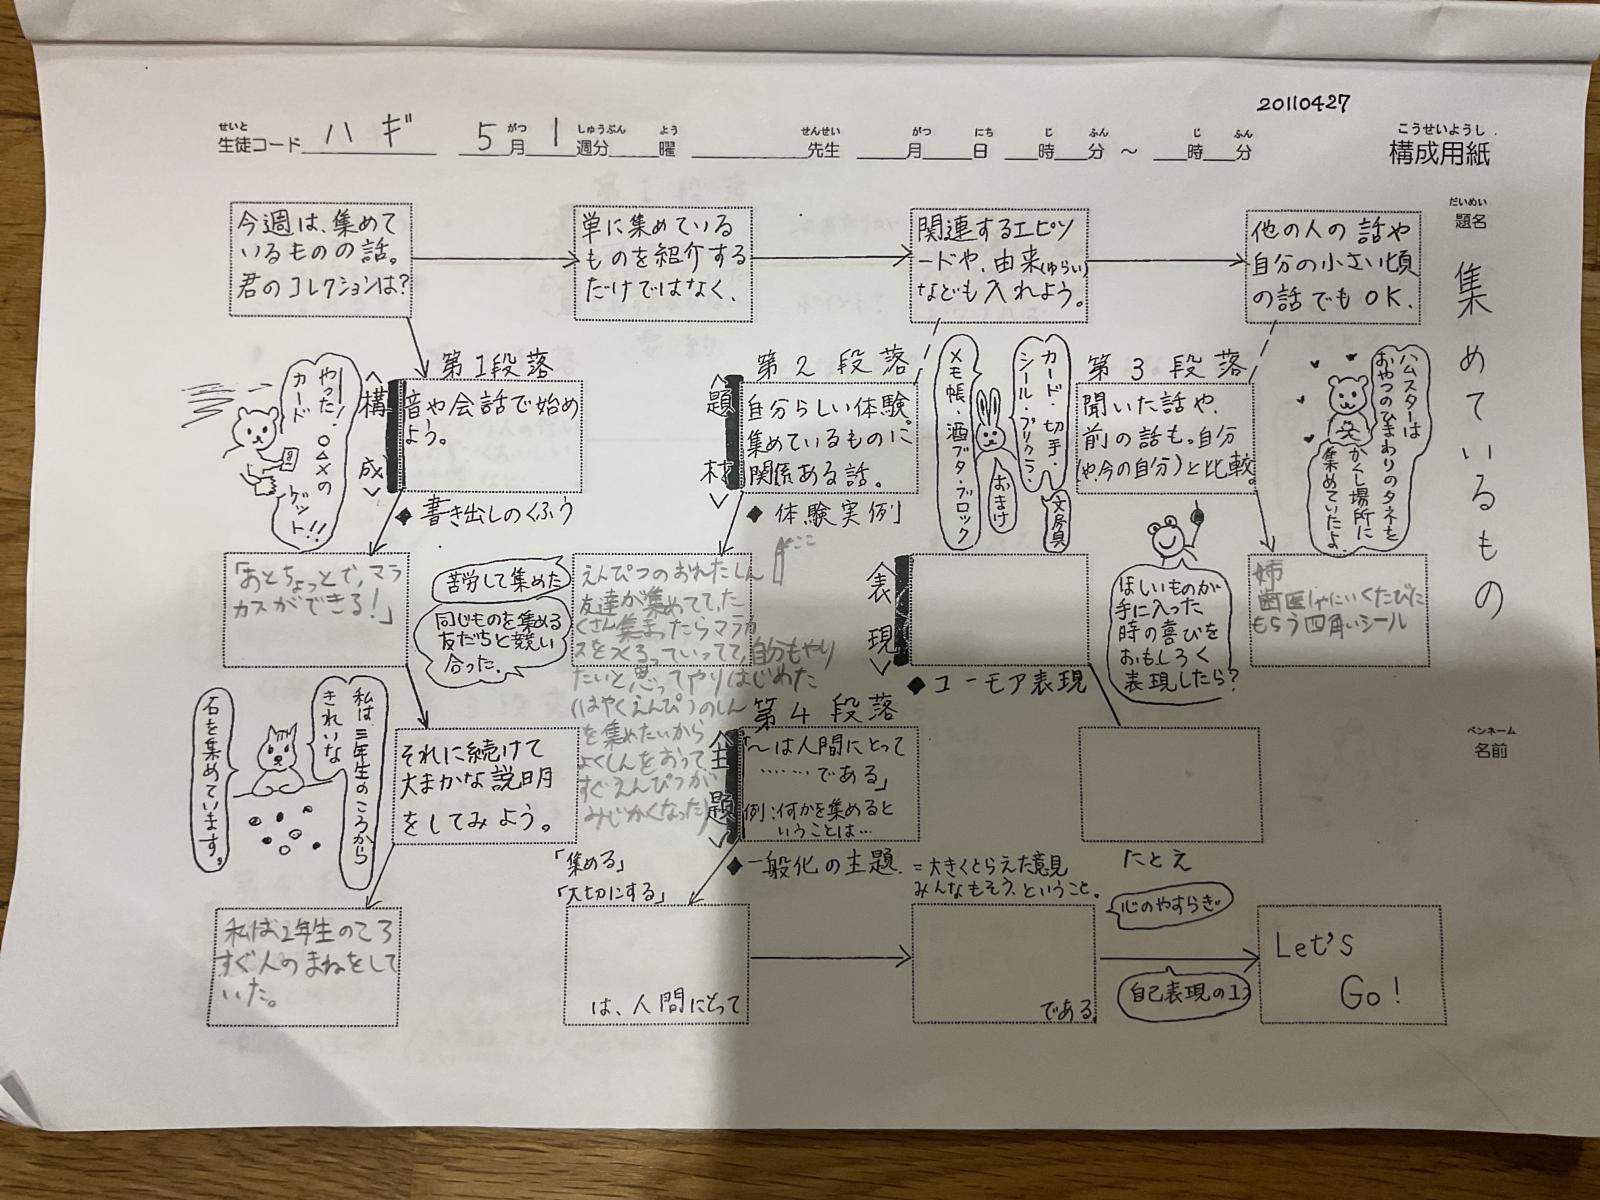 20110427
せいと
生徒コード ハギ 5月 1週分 曜 先生 月 日 時 分 ～ 時 分
がつ しゅうぶん よう せんせい がつ にち じ ふん じ ふん
こうせいようし
構成用紙
だいめい
題名
集めているもの
ペンネーム
名前
今週は、集めて
いるものの話。
君のコレクションは?
単に集めている
ものを紹介する
だけではなく、
関連するエピソ
ードや、由来(ゆらい)
なども入れよう。
他の人の話や
自分の小さい頃
の話でもOK.
第1段落
<構成>
音や会話で始め
よう。
◆書き出しのくふう
やった!○△×の
カード
ゲット!!
第2段落
<題材>
自分らしい体験。
集めているものに
関係ある話。
◆体験実例
カード・切手・
シール・プリクラ・
文房具
メモ帳・酒ブタ・ブロック
おまけ
第3段落
聞いた話や、
前の話も。自分
(や今の自分)と比較。
ハムスターは
おやつのひまわりのタネを
かくし場所に
集めていたよ。
「あとちょっとで、マラ
カスができる!」
苦労して集めた
同じものを集める
友だちと競い
合った。
ここ
えんぴつのおれたしん
友達が集めてて、た
くさん集まったらマラカ
スをつくるっていってて、自分もやり
たいと思ってやりはじめた
(はやくえんぴつのしん
を集めたいから
よくしんをおって、
すぐえんぴつが
みじかくなった)
<表現>
◆ユーモア表現
ほしいものが
手に入った
時の喜びを
おもしろく
表現したら?
姉
歯医しゃにいくたびに
もらう四角いシール
私は三年生のころから
きれいな
石を集めています。
それに続けて
大まかな説明
をしてみよう。
第4段落
<主題>
「～は人間にとって
……である」
例:何かを集めると
いうことは…
◆一般化の主題.=大きくとらえた意見
みんなもそう、ということ。
「集める」
「大切にする」
たとえ
心のやすらぎ。
自己表現の1つ
私は2年生のころ
すぐ人のまねをして
いた。
は、人間にとって
である。
Let's
Go!